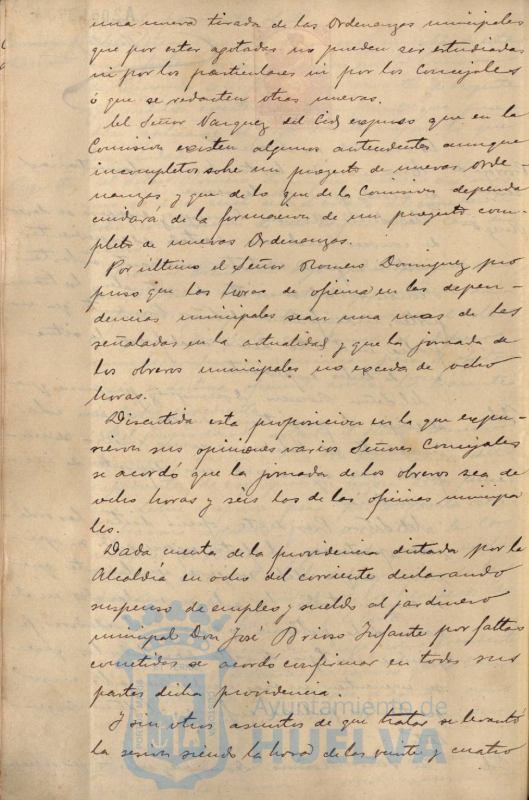 una nueva tirada de las Ordenanzas municipales
que por estar agotadas no pueden ser estudiadas
ni por los particulares ni por los Concejales
ó que se redacten otras nuevas.
El Señor Vazquez del Cid expuso que en la
Comision existen algunos antecedentes aunque
incompletos sobre un proyecto de nuevas orde-
nanzas y que de lo que de la Comision dependa
cuidara de la formacion de un proyecto com-
pleto de nuevas Ordenanzas.
Por último el Señor Romero Dominguez pro
puso que las horas de oficina en las depen-
dencias municipales sean una mas de las
señaladas en la actualidad y que la jornada de
los obreros municipales no exceda de ocho
horas.
Discutida esta proposicion en la que expu-
sieron sus opiniones varios Señores Concejales
se acordó que la jornada de los obreros sea de
ocho horas y seis las de las oficinas municipa
les.
Dada cuenta de la providencia dictada por la
Alcaldía en ocho del corriente declarando
suspenso de empleo y sueldo al jardinero
municipal Don José Brioso Infante por faltas
cometidas se acordó confirmar en todas sus
partes dicha providencia.
Y sin otros asuntos de que tratar se levantó
la sesion siendo la hora de las veinte y cuatro
Ayuntamiento de
HUELVA